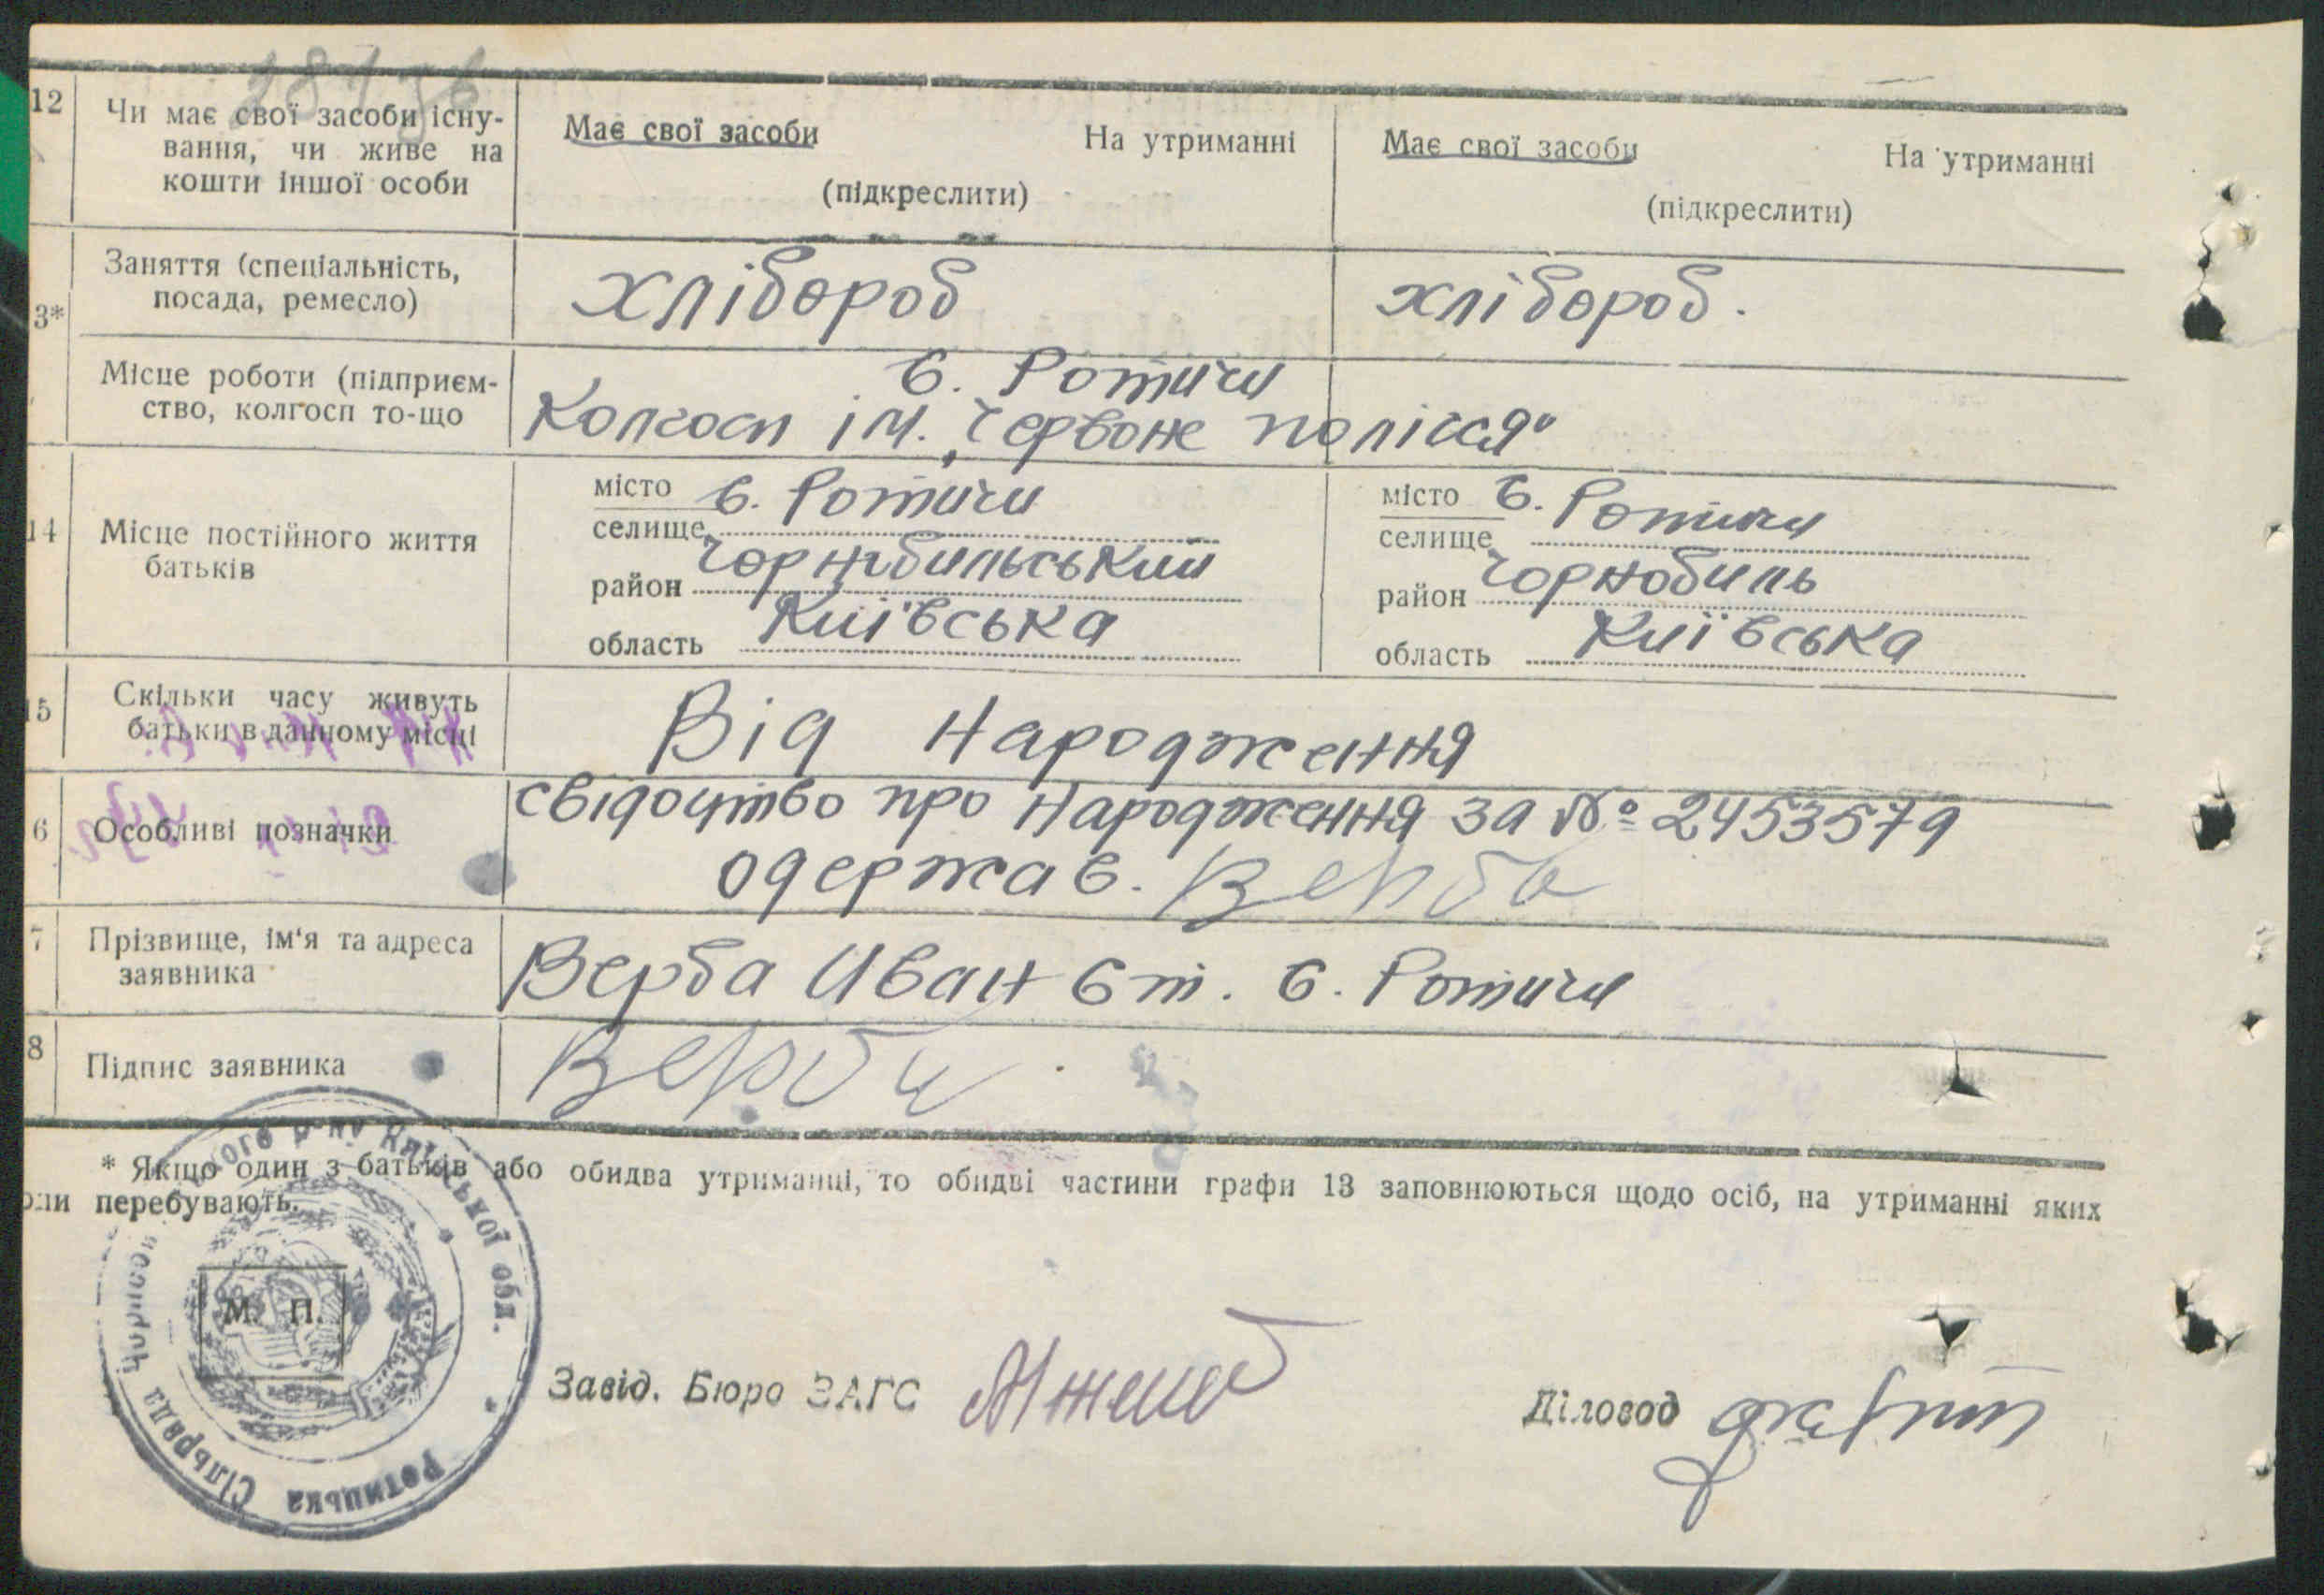 12 Чи має свої засоби існу-
вання, чи живе на
кошти іншої особи
Має свої засоби На утриманні
(підкреслити)
Має свої засоби На утриманні
(підкреслити)
3* Заняття (спеціальність,
посада, ремесло)
хлібороб
хлібороб.
Місце роботи (підприєм-
ство, колгосп то-що
с. Ротичи
Колгосп ім. „Червоне полісся"
14 Місце постійного життя
батьків
місто с. Ротичи
селище
район Чорнобильський
область Київська
місто с. Ротичи
селище
район Чорнобиль
область Київська
15 Скільки часу живуть
батьки в данному місці
Від народження
6 Особливі позначки
свідоцтво про народження за № 2453579
одержав. Верба
7 Прізвище, ім'я та адреса
заявника
Верба Иван Ст. с. Ротичи
8 Підпис заявника
Верба
* Якщо один з батьків або обидва утриманці, то обидві частини графи 13 заповнюються щодо осіб, на утриманні яких
они перебувають.
М. П.
Ротицька Сільрада р-ну Київської обл.
Завід. Бюро ЗАГС
Діловод